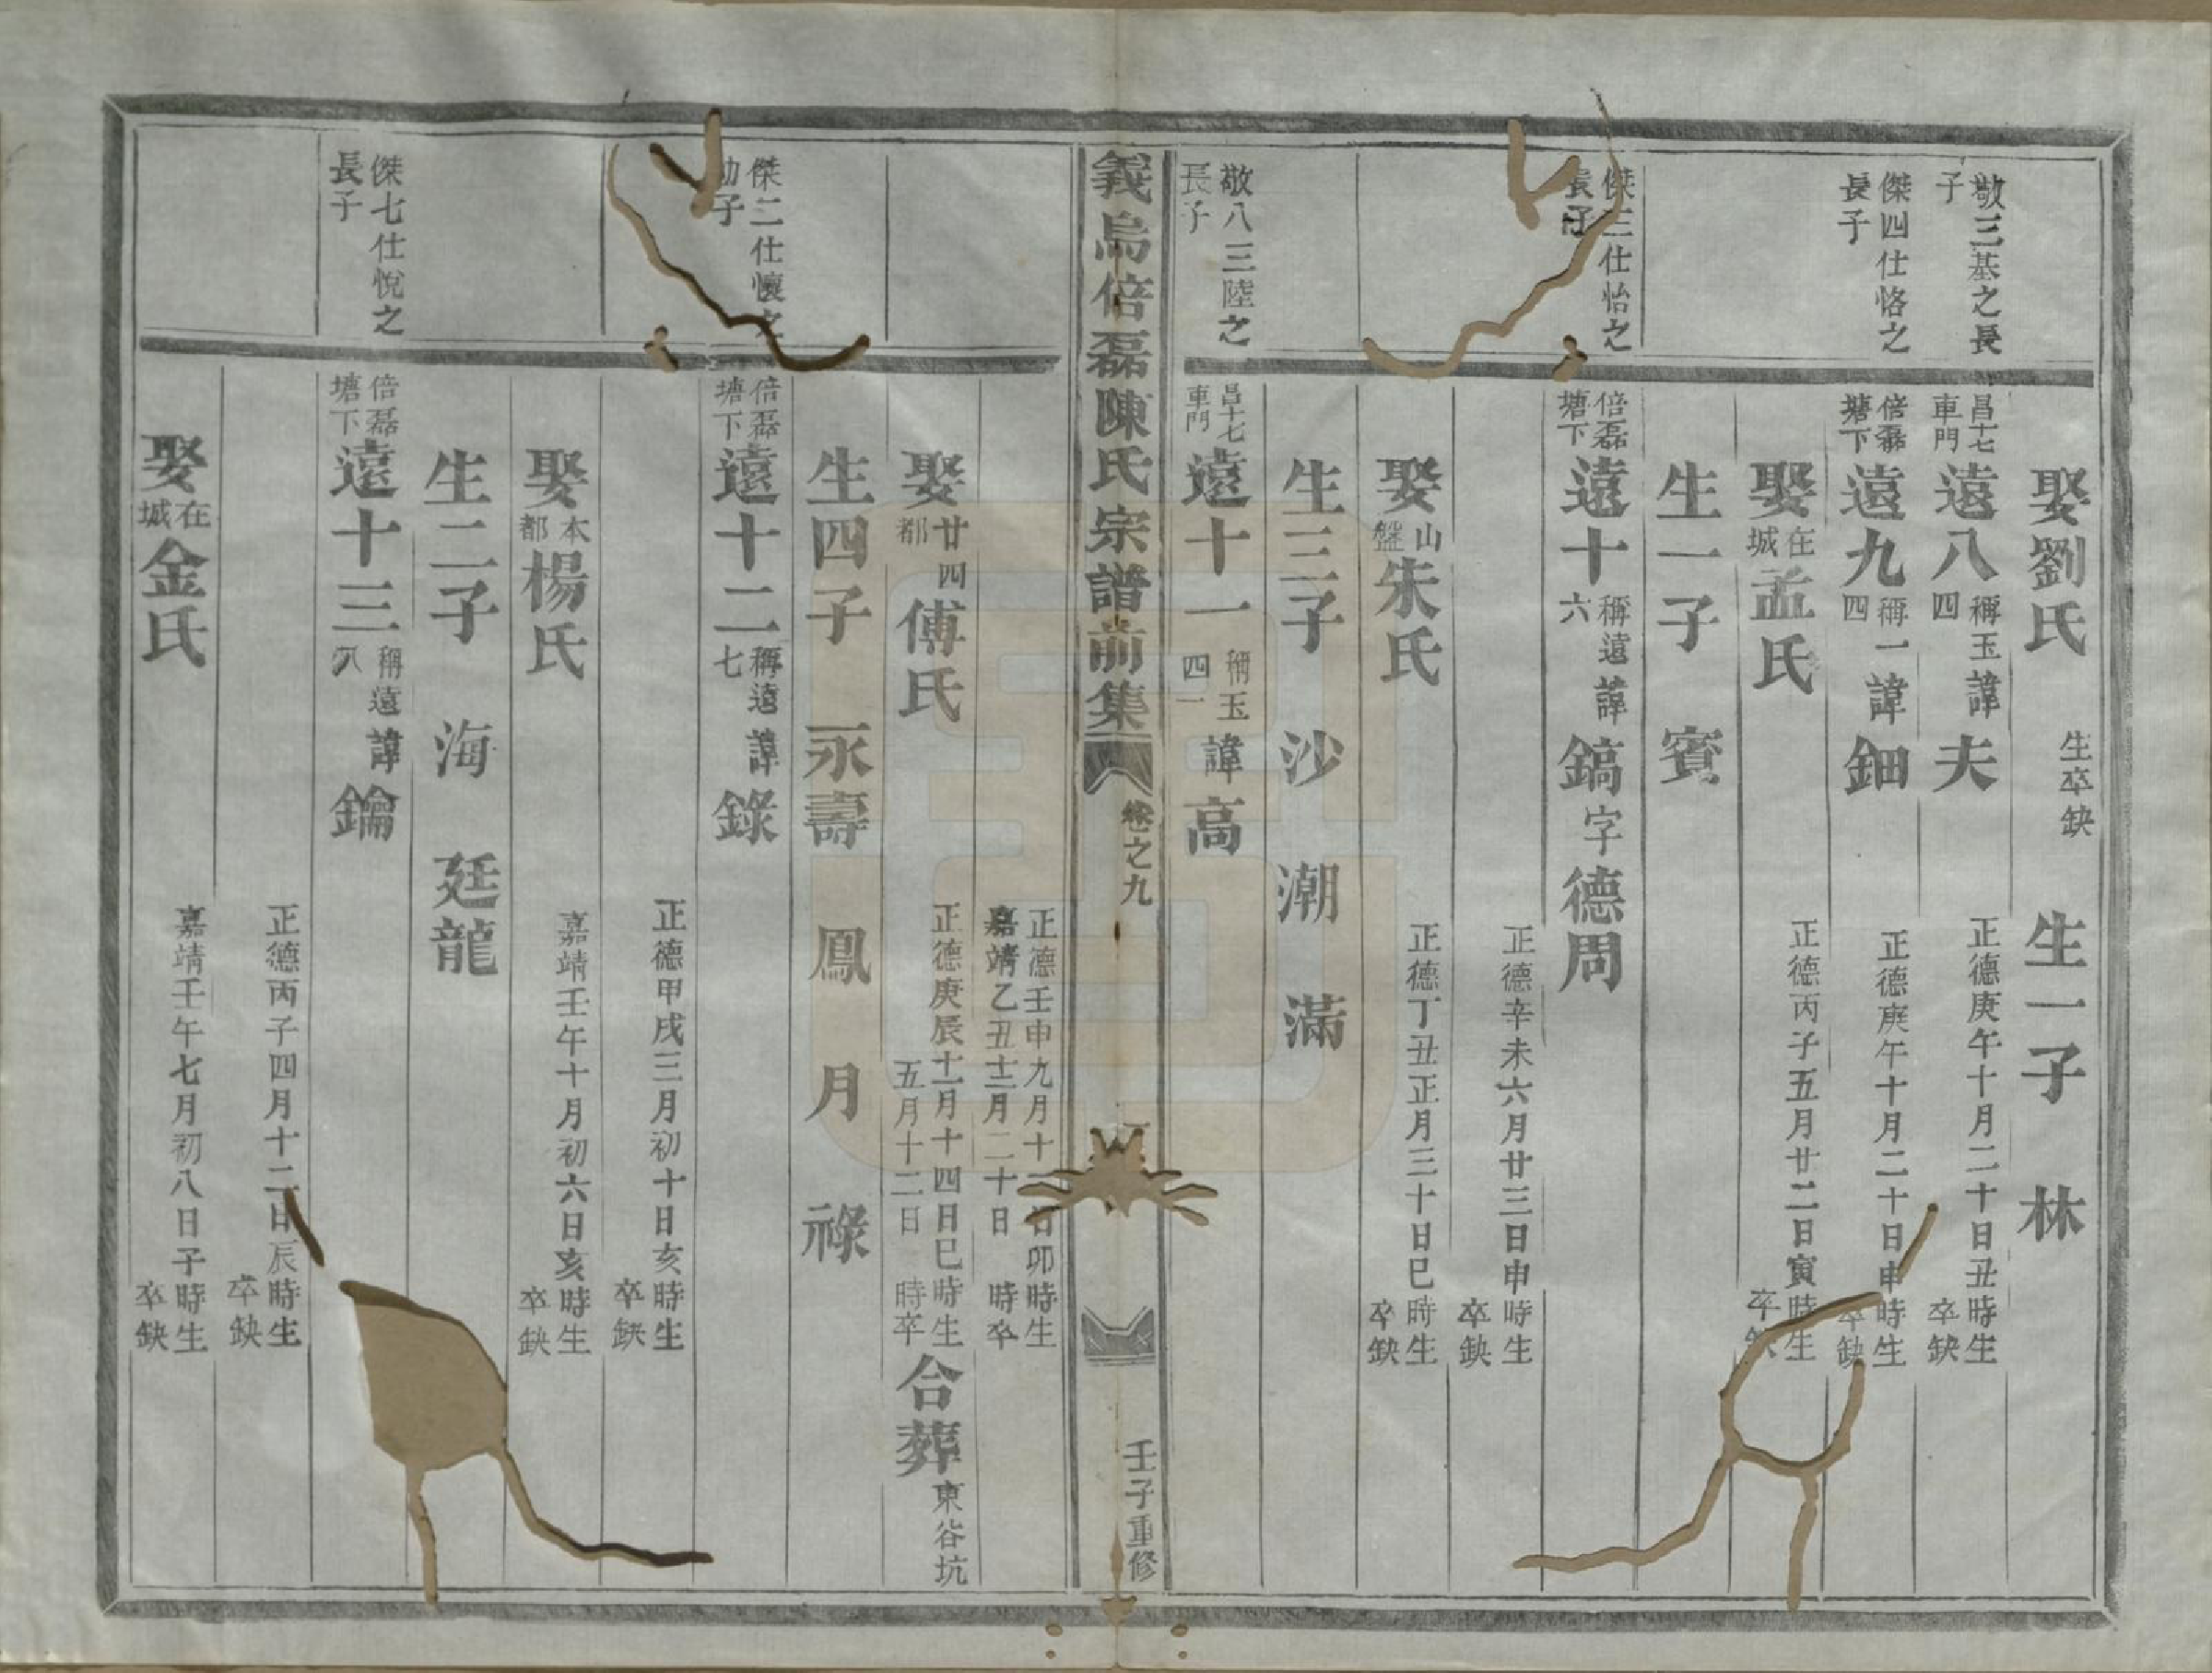 娶劉氏 生卒缺 生一子 林
敬三基之長子
昌十七車門 遠八 稱玉四 諱夫 正德庚午十月二十日丑時生 卒缺
傑四仕恪之長子
倍磊塘下 遠九 稱一四 諱鈿 正德庚午十月二十日申時生 卒缺
娶 在城 孟氏 正德丙子五月廿二日寅時生 卒缺
生一子 賓
傑三仕怡之長子
倍磊塘下 遠十 稱遠六 諱鎬字德周 正德辛未六月廿三日申時生 卒缺
娶 山盤 朱氏 正德丁丑正月三十日巳時生 卒缺
生三子 沙 潮 滿
敬八三陸之長子
昌十七車門 遠十一 稱玉四一 諱高
義烏倍磊陳氏宗譜前集 卷之九 壬子重修
正德壬申九月十 日卯時生 嘉靖乙丑十二月二十日 時卒
娶 廿四都 傅氏 正德庚辰十一月十四日巳時生 五月十二日 時卒 合葬 東谷坑
生四子 永壽 鳳 月 祿
傑二仕懷之幼子
倍磊塘下 遠十二 稱遠七 諱錄 正德甲戌三月初十日亥時生 卒缺
娶 本都 楊氏 嘉靖壬午十月初六日亥時生 卒缺
生二子 海 廷龍
傑七仕悅之長子
倍磊塘下 遠十三 稱遠八 諱鑰 正德丙子四月十二日辰時生 卒缺
娶 在城 金氏 嘉靖壬午七月初八日子時生 卒缺